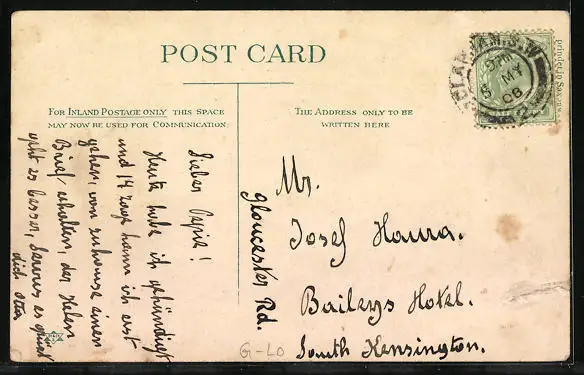 POST CARD
FOR INLAND POSTAGE ONLY THIS SPACE
MAY NOW BE USED FOR COMMUNICATION.
THE ADDRESS ONLY TO BE
WRITTEN HERE
Lieber Pepie!
Heute habe ich gekündigt
und 14 Tage kann ich erst
gehen, von zuhause einen
Brief erhalten, der Helen
geht es besser, Servus es grüsst
dich Otto
Mr.
Josef Houra.
Baileys Hotel.
South Kensington.
Gloucester Rd.
G-LO
CLAPHAM. S.W
MY
08
printed in Saxony